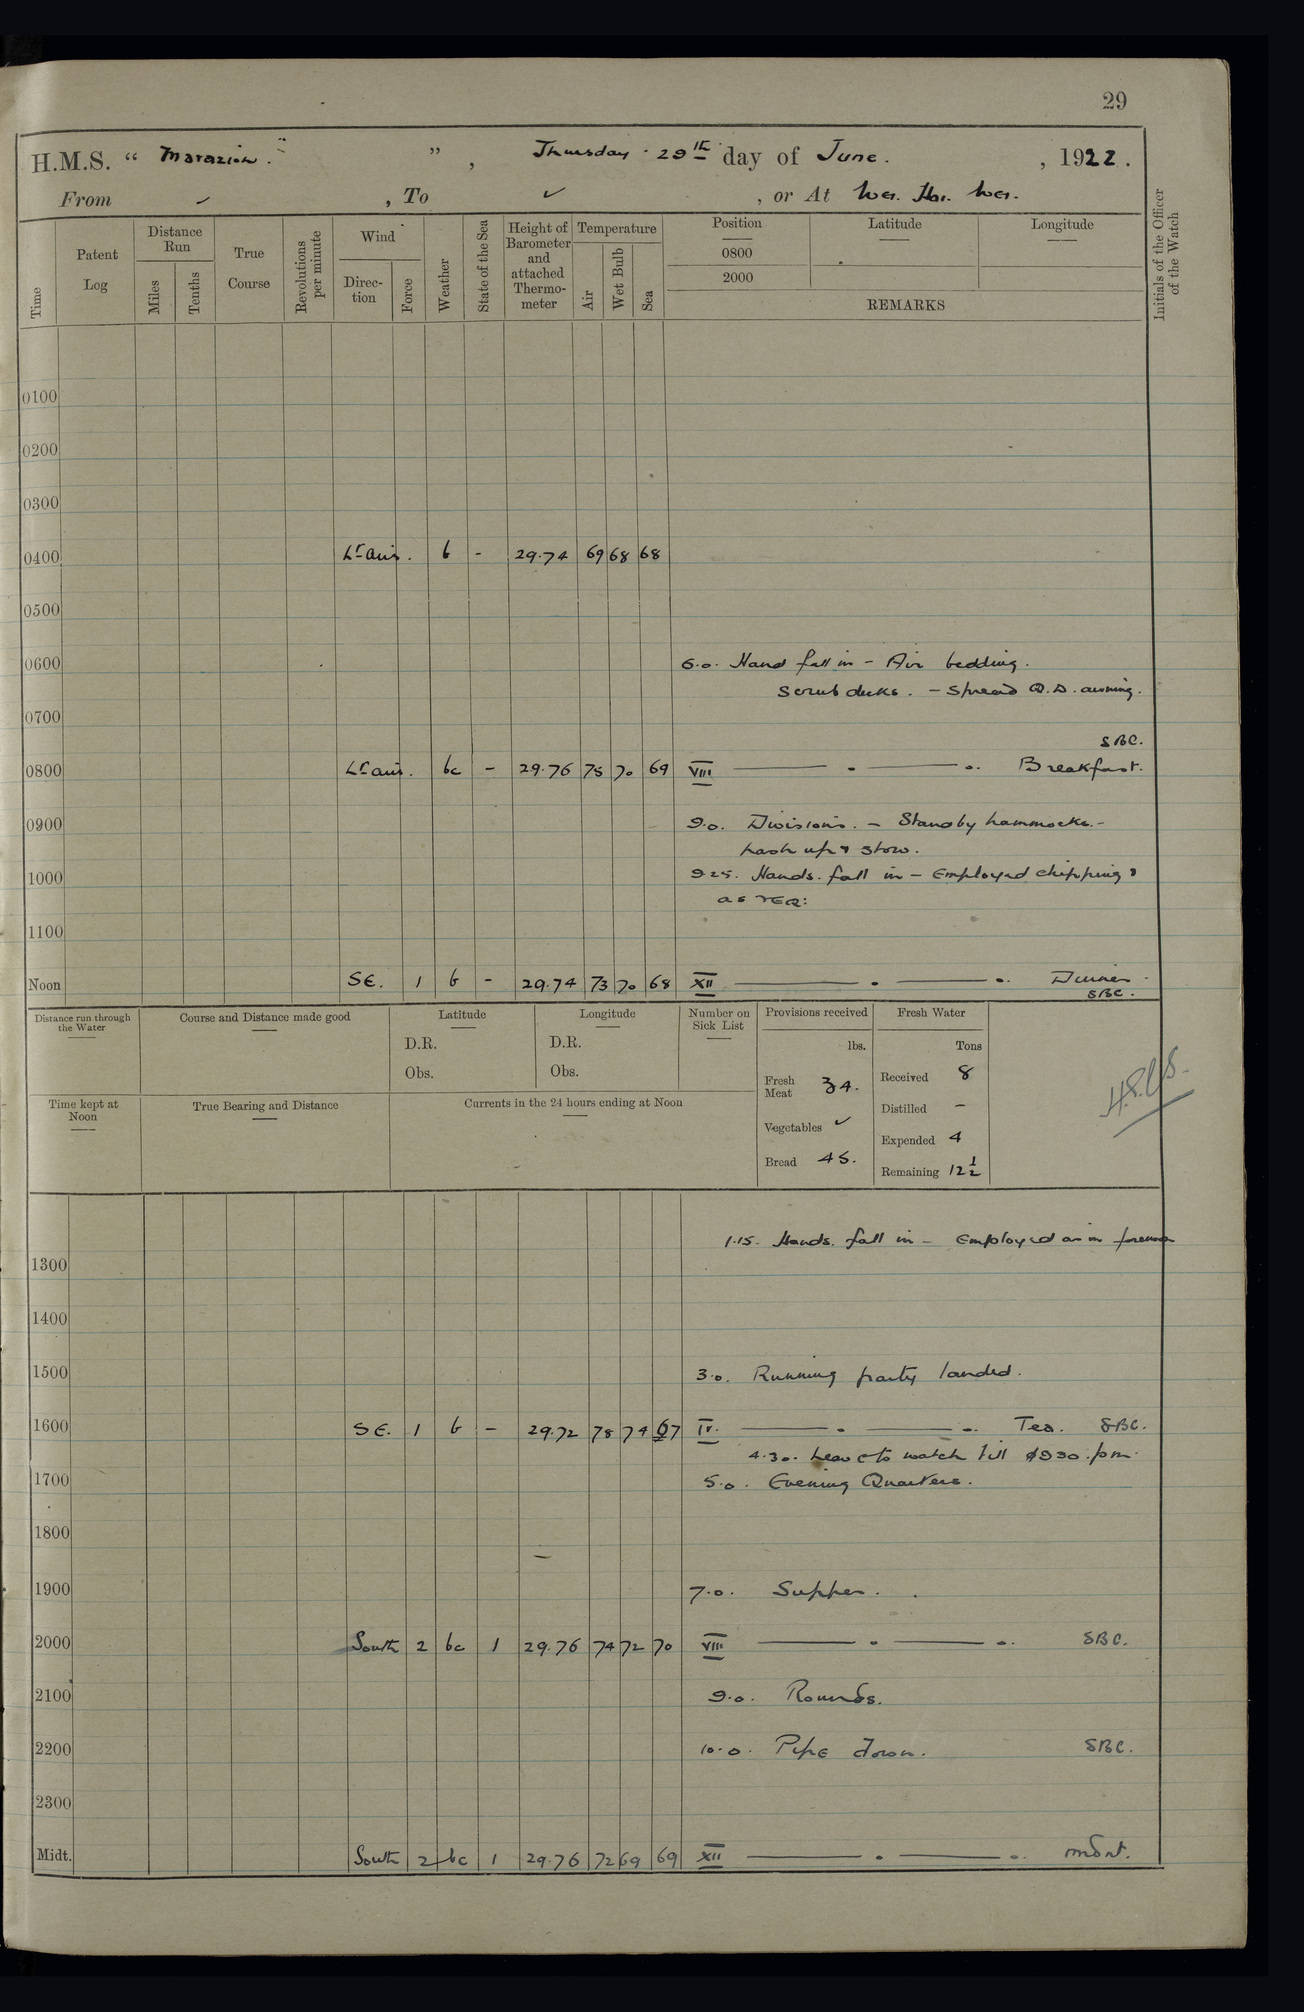 29
H.M.S. “ Marazion. ” , Thursday 29th day of June. , 1922.
From ✓ , To ✓ , or At Wei. Hai. Wei.
Time
Patent Log
Distance Run
Miles
Tenths
True Course
Revolutions per minute
Wind
Direc-tion
Force
Weather
State of the Sea
Height of Barometer and attached Thermo-meter
Temperature
Air
Wet Bulb
Sea
Position
0800
2000
Latitude
Longitude
REMARKS
Initials of the Officer of the Watch
0100
0200
0300
0400 Lt airs. b - 29.74 69 68 68
0500
0600 6.0. Hand fall in - Air bedding.
Scrub decks. - Spread Q.D. awning.
0700
SBC.
0800 Lt airs. bc - 29.76 75 70 69 VIII Breakfast.
0900 9.0. Divisions. - Stand by hammocks. -
lash up & stow.
1000 9 25. Hands. fall in - Employed chipping &
as req:
1100
Noon SE. 1 b - 29.74 73 70 68 XII Dinner
SBC.
Distance run through the Water
Course and Distance made good
Latitude
D.R.
Obs.
Longitude
D.R.
Obs.
Number on Sick List
Provisions received
lbs.
Fresh Meat 34.
Vegetables ✓
Bread 45.
Fresh Water
Tons
Received 8
Distilled -
Expended 4
Remaining 12 1/2
Time kept at Noon
True Bearing and Distance
Currents in the 24 hours ending at Noon
1.15. Hands. fall in - Employed as in forenoon
1300
1400
1500 3.0. Running party landed.
1600 SE. 1 b - 29.72 78 74 67 IV. Tea. SBC.
4.30. Leave to watch till 930. pm.
1700 5.0. Evening Quarters.
1800
1900 7.0. Supper.
2000 South 2 bc 1 29.76 74 72 70 VIII SBC.
2100 9.0. Rounds.
2200 10.0. Pipe down. SBC.
2300
Midt. South 2 bc 1 29.76 72 69 69 XII